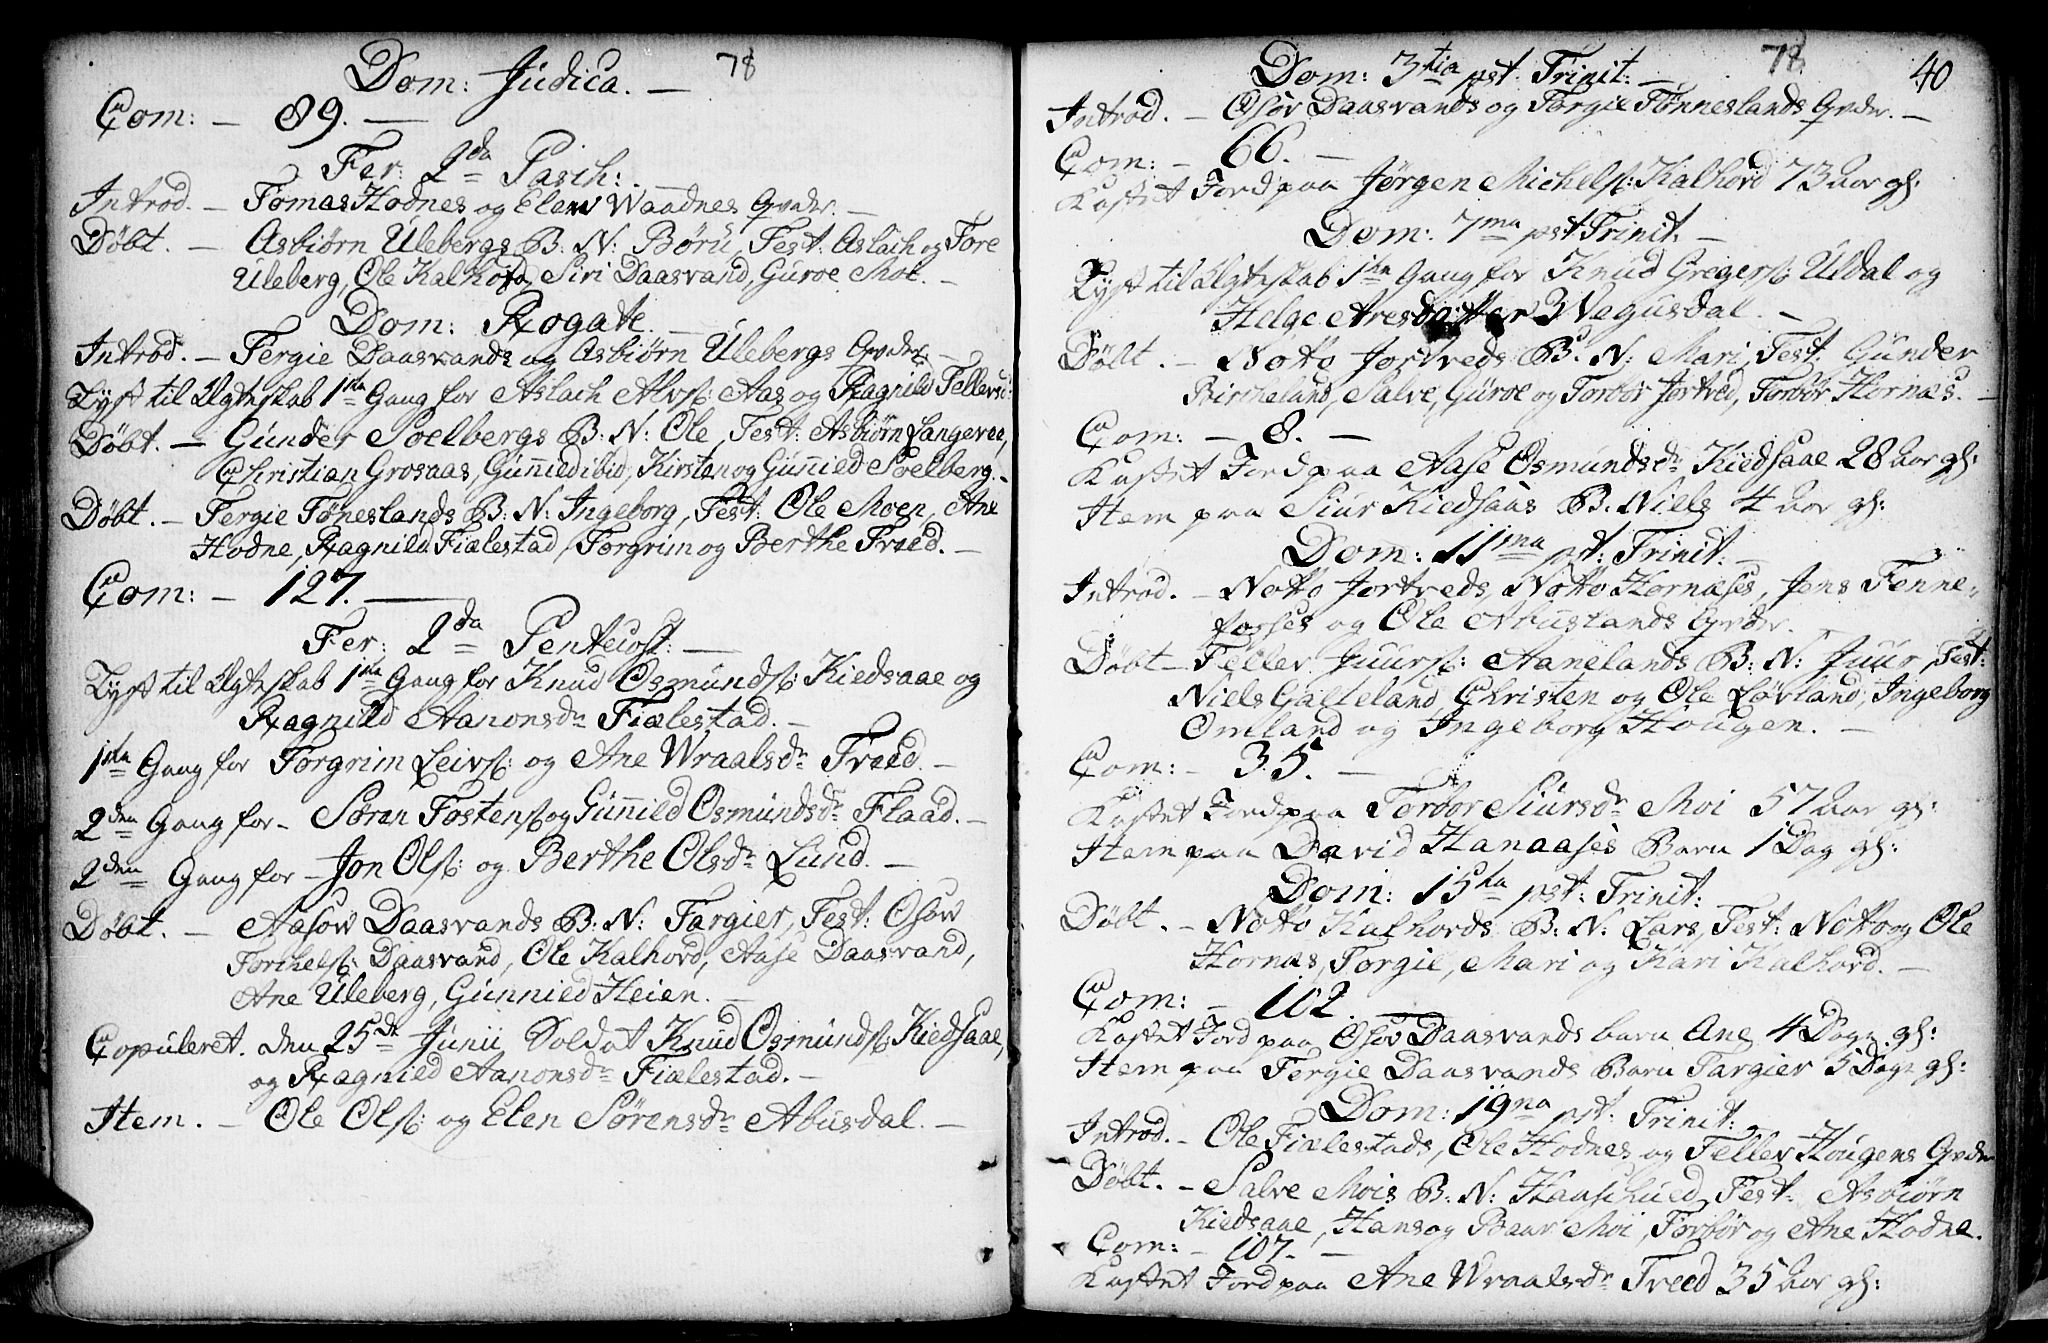 Dom: Judica. — 78
Com: — 89. —
Fer: 2da Pasch:
Introd. — Tomas Hodnes og Elew Waadnes Qvder. —
Döbt. — Asbiørn Ulebergs B: N: Børu, Test: Aslach og Tore
Uleberg, Ole Kalhord, Siri Daasvand, Guroe Moe. —
Dom: Rogate. —
Introd. — Tergie Daasvands og Asbiørn Ulebergs Qvder. —
Lyst til Ægteskab 1ste Gang for Aslach Alvs: Aas og Ragnild Tellersdr
Döbt. — Gunder Soelbergs B: N: Ole, Test: Asbiørn Langevee,
Christian Grosaas, Gunnied ibid, Kirsten og Gunnield Soelberg. —
Döbt. — Tergie Tøneslands B: N: Ingeborg, Test: Ole Moen, Ane
Hodne, Ragnild Fialestad, Torgrim og Berthe Treed. —
Com: — 127. —
Fer: 2da Pentecost: —
Lyst til Ægteskab 1ste Gang for Knud Osmunds: Kiedsaae og
Ragnild Aanonsdr Fialestad. —
1ste Gang for Torgrim Leivs: og Ane Wraalsdr Treed. —
2den Gang for — Søren Tostens: og Gunnild Osmundsdr Flaad. —
2den Gang for — Jon Ols: og Berthe Olsdr Lund. —
Döbt. — Aasow Daasvands B: N: Targier, Test: Osow
Torchels: Daasvand, Ole Kalhord, Aase Daasvand,
Ane Uleberg, Gunnied Heien. —
Copuleret. den 25de Junii Soldat Knud Osmunds: Kiedsaae,
og Ragnild Aanonsdr Fialestad. —
Item. — Ole Ols: og Elen Sørensdr Abusdal. —
78 40
Dom: 3tia pst: Trinit: —
Introd. — Osov Daasvands og Targie Tønneslands Qvder. —
Com: — 66. —
Kastet Jord paa Jørgen Michels: Kalhord 73 Aar gl:
Dom: 7ma pst Trinit: —
Lyst til Ægteskab 1ste Gang for Knud Gregers: Uldal og
Helge Aresdatter Wegusdal. —
Döbt. — Notto Jortveds B: N: Mari, Test: Gunder
Bircheland, Salve, Guroe og Torbør Jortved, Torbør Hornæs. —
Com: — 8. —
Kastet Jord paa Aase Osmundsdr Kiedsaae 28 Aar gl:
Item paa Siur Kiedsaas B. Niels 4 Aar gl:
Dom: 11ma pst: Trinit: —
Introd. — Notto Jortveds, Notto Hornæses, Jens Fenne-
fosses og Ole Abuslands Qvdr. —
Döbt — Teller Juurs: Aanelands B: N: Juur, Test:
Niels Galteland, Christen og Ole Løvland, Ingeborg
Omland og Ingeborg Hougen. —
Com: — 35. —
Kastet Jord paa Torbor Siursdr Moi 57 Aar gl:
Item paa David Hanaases Barn 1 Dag gl:
Dom: 15ta pst: Trinit:
Döbt. — Notto Kalhords B: N: Lars, Test: Notto og Ole
Hornæs, Torgie, Mari og Kari Kalhord. —
Com: — 102. —
Kastet Jord paa Osov Daasvands barn Ane 4 Dage gl:
Item paa Tergie Daasvands Barn Targier 5 Dage gl:
Dom: 19na pst: Trinit:
Introd. — Ole Fialestads, Ole Hodnes og Teller Hougens Qvder
Döbt. — Salve Mois B: N: Test: Asbiørn
Kiedsaae, Hans og Baar Moi, Torbør og Ane Hodne.
Com: — 107. —
Kastet Jord paa Ane Wraalsdr Treed 35 Aar gl: